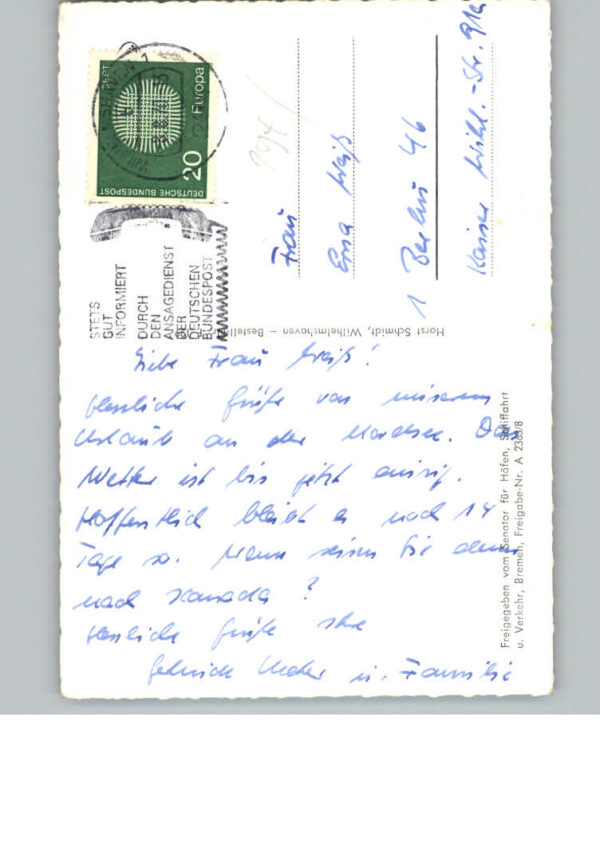 Liebe Frau Weiß!
herzliche Grüße von unserem
Urlaub an der Nordsee. Das
Wetter ist bis jetzt
Hoffentlich bleibt es noch 14
Tage so. Wann reisen Sie denn
nach Kanada?
herzliche Grüße Ihre
u. Familie
Frau
Erna Weiß
1 Berlin 46
Kaiser Wilh.-Str. 91a
DEUTSCHE BUNDESPOST
20
Europa
STETS
GUT
INFORMIERT
DURCH
DEN
ANSAGEDIENST
DER
DEUTSCHEN
BUNDESPOST
Horst Schmidt, Wilhelmshaven –
Freigegeben vom Senator für Häfen, Schiffahrt
u. Verkehr, Bremen, Freigabe-Nr. A 2365/8